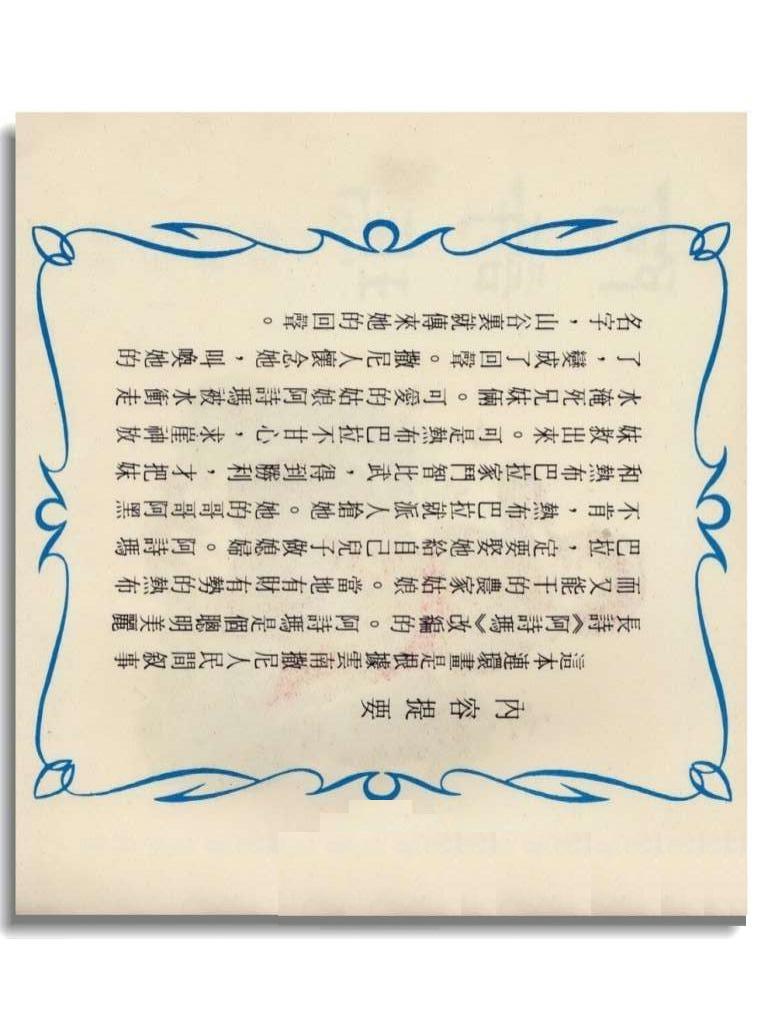 內容提要
這本連環畫是根據雲南撒尼人民間叙事
長詩《阿詩瑪》改編的。阿詩瑪是個聰明美麗
而又能干的農家姑娘。當地有財有勢的熱布
巴拉，定要娶她給自己兒子做媳婦。阿詩瑪
不肯，熱布巴拉就派人搶她。她的哥哥阿黑
和熱布巴拉家鬥智比武，得到勝利，才把妹
妹救出來。可是熱布巴拉不甘心，求崖神放
水淹死兄妹倆。可愛的姑娘阿詩瑪被水衝走
了，變成了回聲。撒尼人懷念她，叫喚她的
名字，山谷裏就傳來她的回聲。